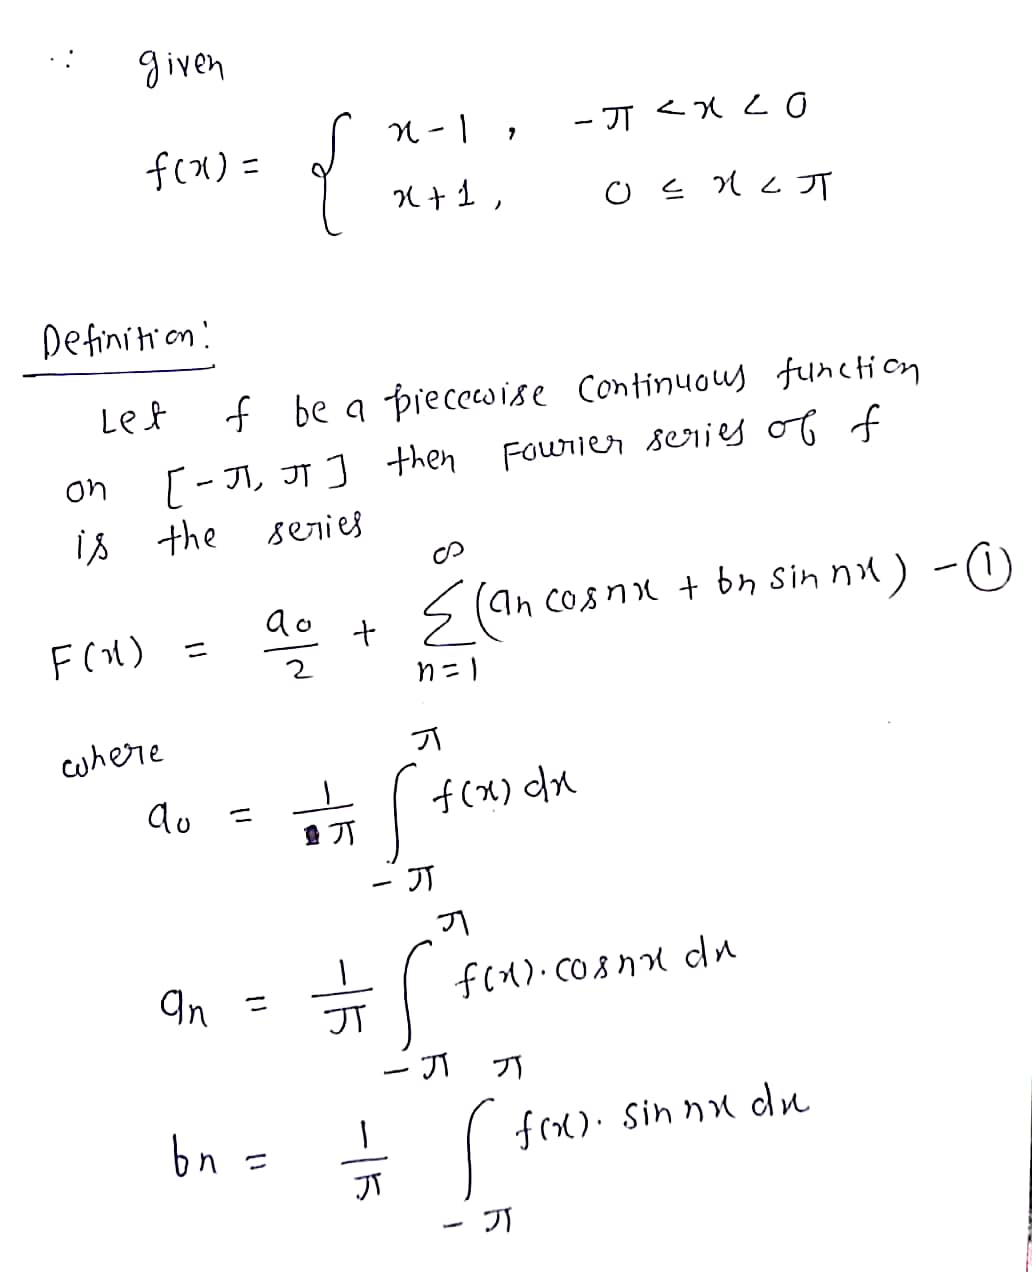 ∵ given
f(x) = { x-1 , -π < x < 0
x+1 , 0 ≤ x < π
Definition:
Let f be a piecewise Continuous function
on [-π, π] then Fourier series of f
is the series
F(x) = a0/2 + ∞ Σ n=1 (an cosnx + bn sin nx) - ①
where
a0 = 1/π ∫_{-π}^{π} f(x) dx
an = 1/π ∫_{-π}^{π} f(x). cosnx dx
bn = 1/π ∫_{-π}^{π} f(x). sin nx dx